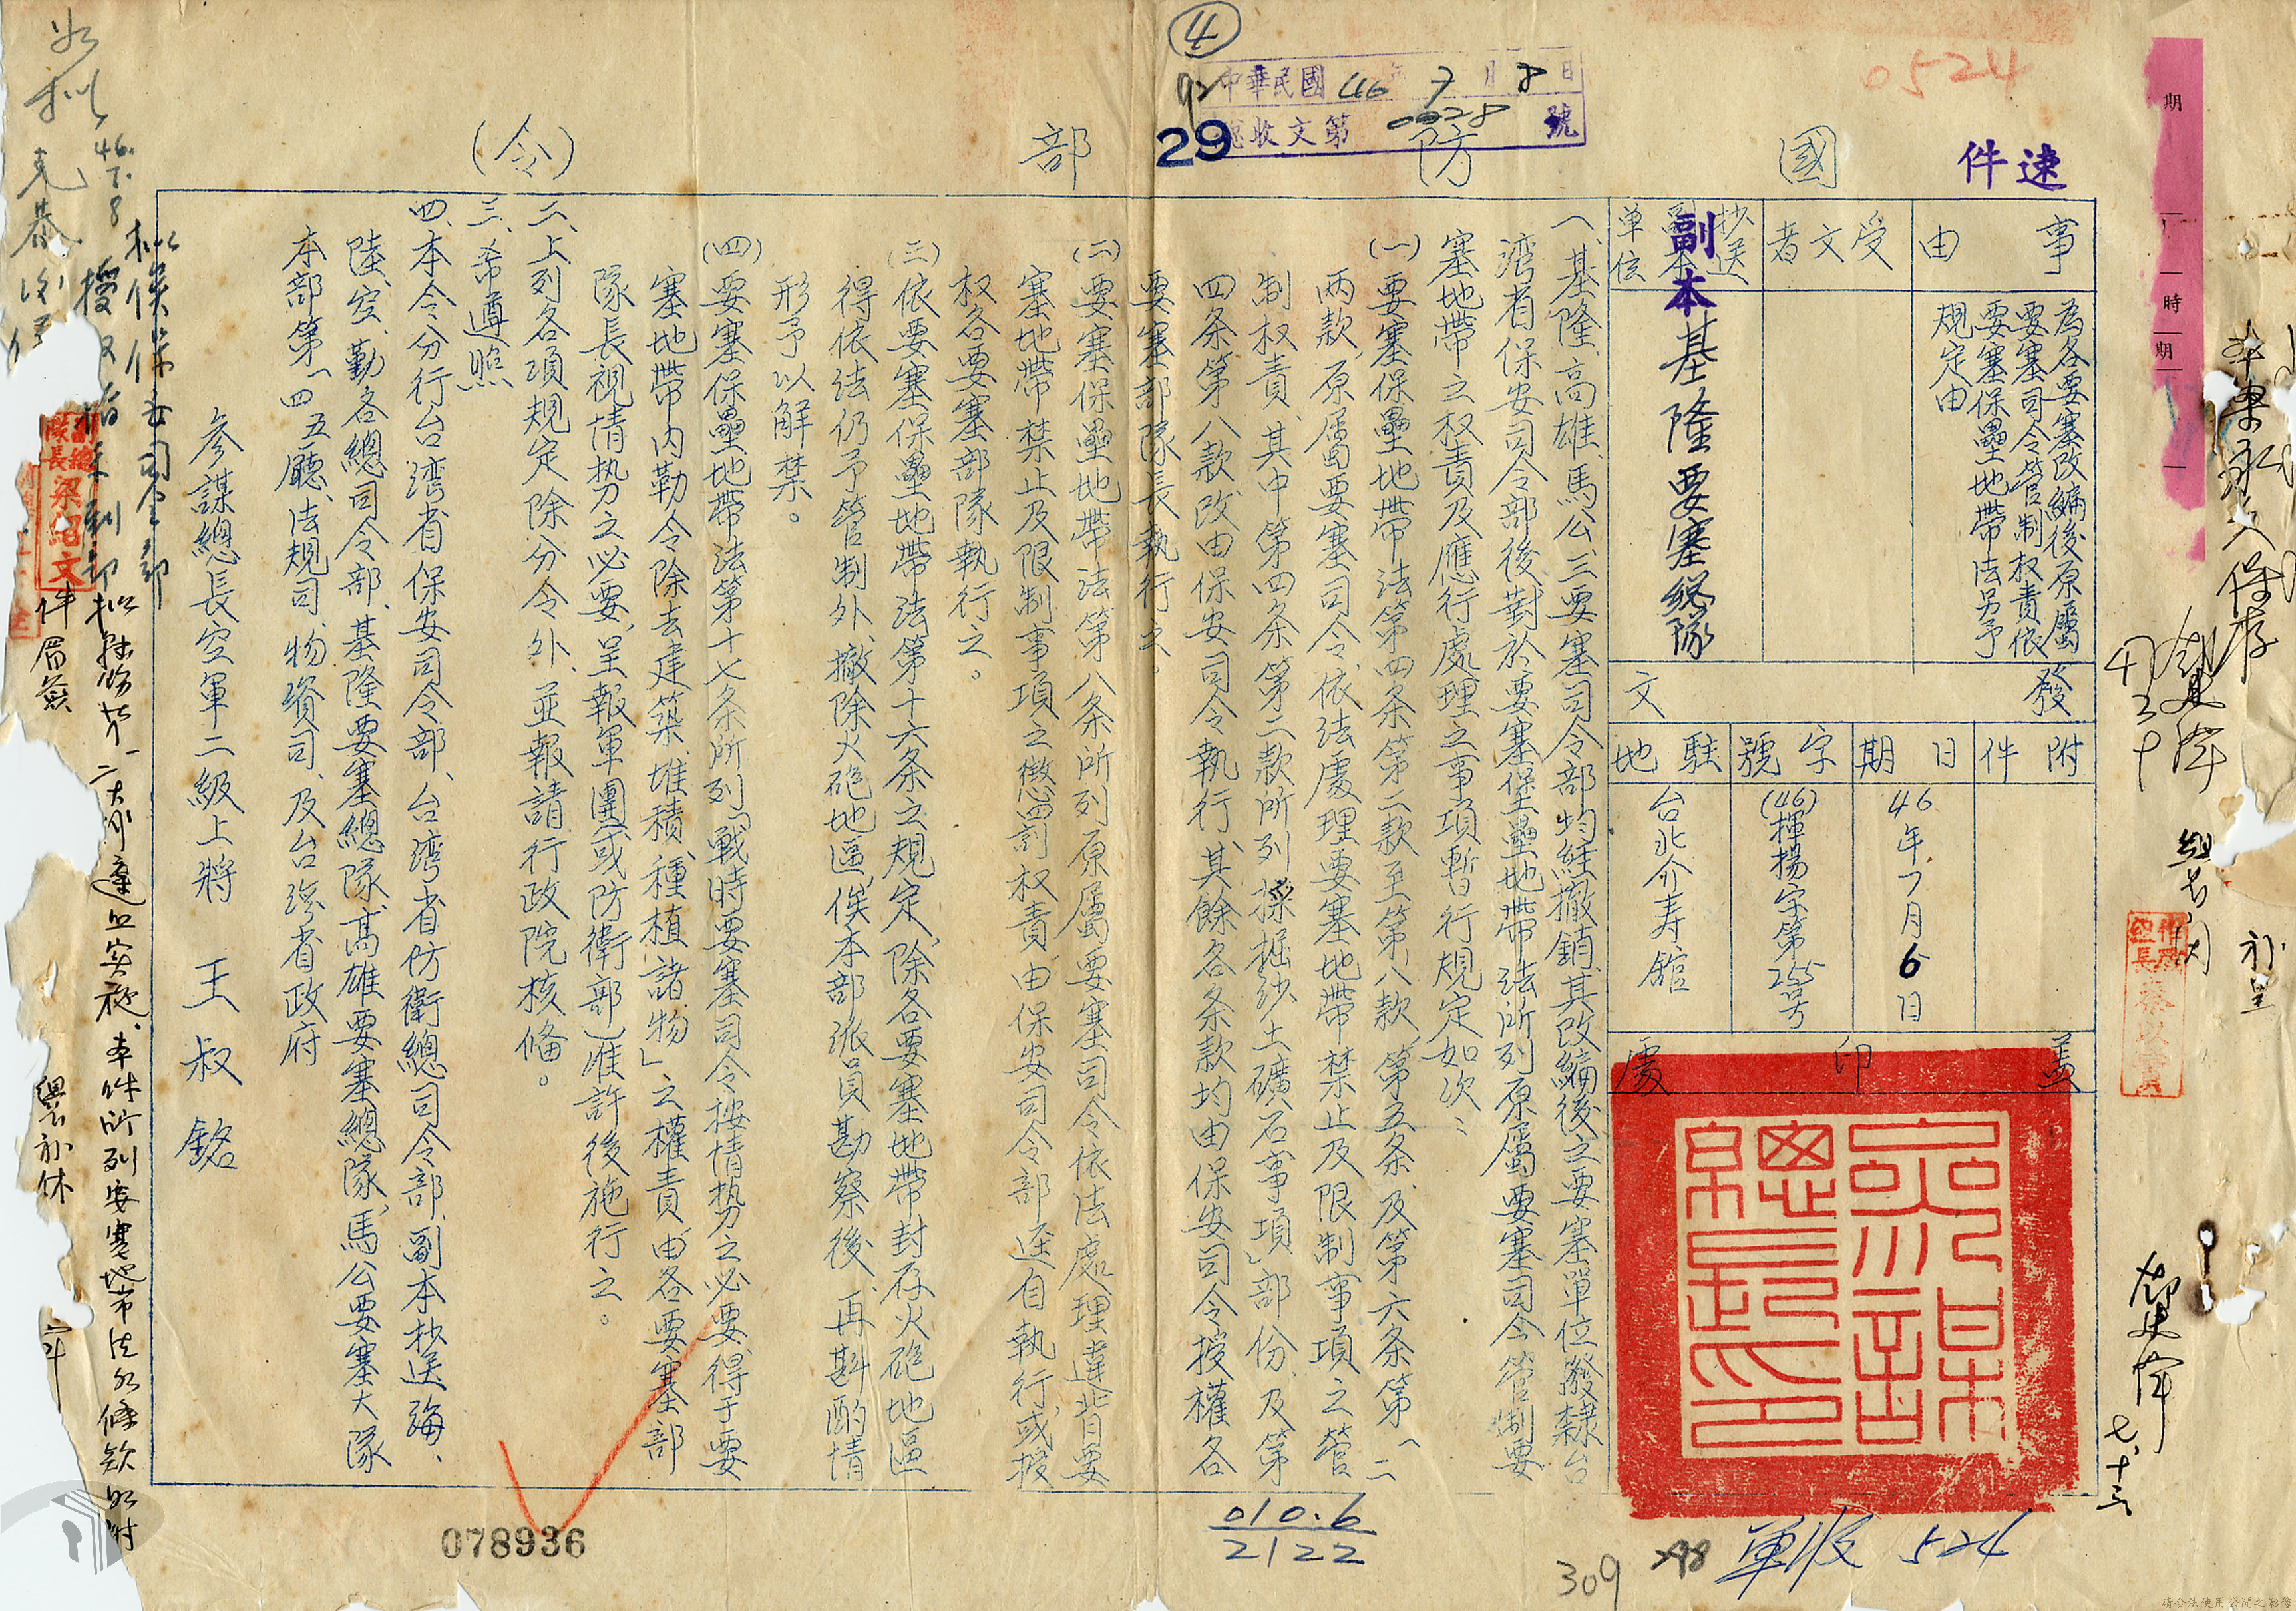 0524
速件
④
中華民國46年7月8日
總收文第0028號
29
國防部(令)
事由
為各要塞改編後原屬
要塞司令管制权責依
要塞保壘地帶法另予
規定由
受文者
抄送單位
副本
基隆要塞總隊
發文
附件
日期
46年7月6日
字號
(46)揮揚字第255号
駐地
台北介寿舘
蓋印處
參謀總長印
一、基隆、高雄、馬公三要塞司令部均經撤銷、其改編後之要塞單位撥隸台
湾省保安司令部後對於要塞保壘地帶法所列原屬要塞司令管制要
塞地帶之权責及應行處理之事項暫行規定如次：
(一)要塞保壘地帶法第四条第二款至第八款、第五条及第六条第一二
两款、原屬要塞司令、依法處理要塞地帶禁止及限制事項之管
制权責、其中第四条第二款所列「採掘沙土礦石事項」部份、及第
四条第八款改由保安司令執行、其餘各条款均由保安司令授權各
要塞部隊長執行之。
(二)要塞保壘地帶法第八条所列原屬要塞司令依法處理違背要
塞地帶禁止及限制事項之懲罰权責、由保安司令部逕自執行、或授
权各要塞部隊執行之。
(三)依要塞保壘地帶法第十六条之規定、除各要塞地帶封存火砲地區
得依法仍予管制外、撤除火砲地區、俟本部派員勘察後、再斟酌情
形予以解禁。
(四)要塞保壘地帶法第十七条所列「戰時要塞司令按情势之必要、得于要
塞地帶內勒令除去建築、堆積、種植、諸物」之權責、由各要塞部
隊長視情势之必要、呈報軍團(或防衛部)准許後施行之。
二、上列各項規定除分令外、並報請行政院核備。
三、希遵照
四、本令分行台湾省保安司令部、台湾省防衛總司令部、副本抄送海、
陸、空、勤各總司令部、基隆要塞總隊、高雄要塞總隊、馬公要塞大隊
本部第一四五廳、法規司、物資司、及台湾省政府
參謀總長空軍二級上將 王叔銘
梁紹文
46.7.8
078936
010.6
2122
309
298
單收 524
七.十三
請合法使用公開之影像